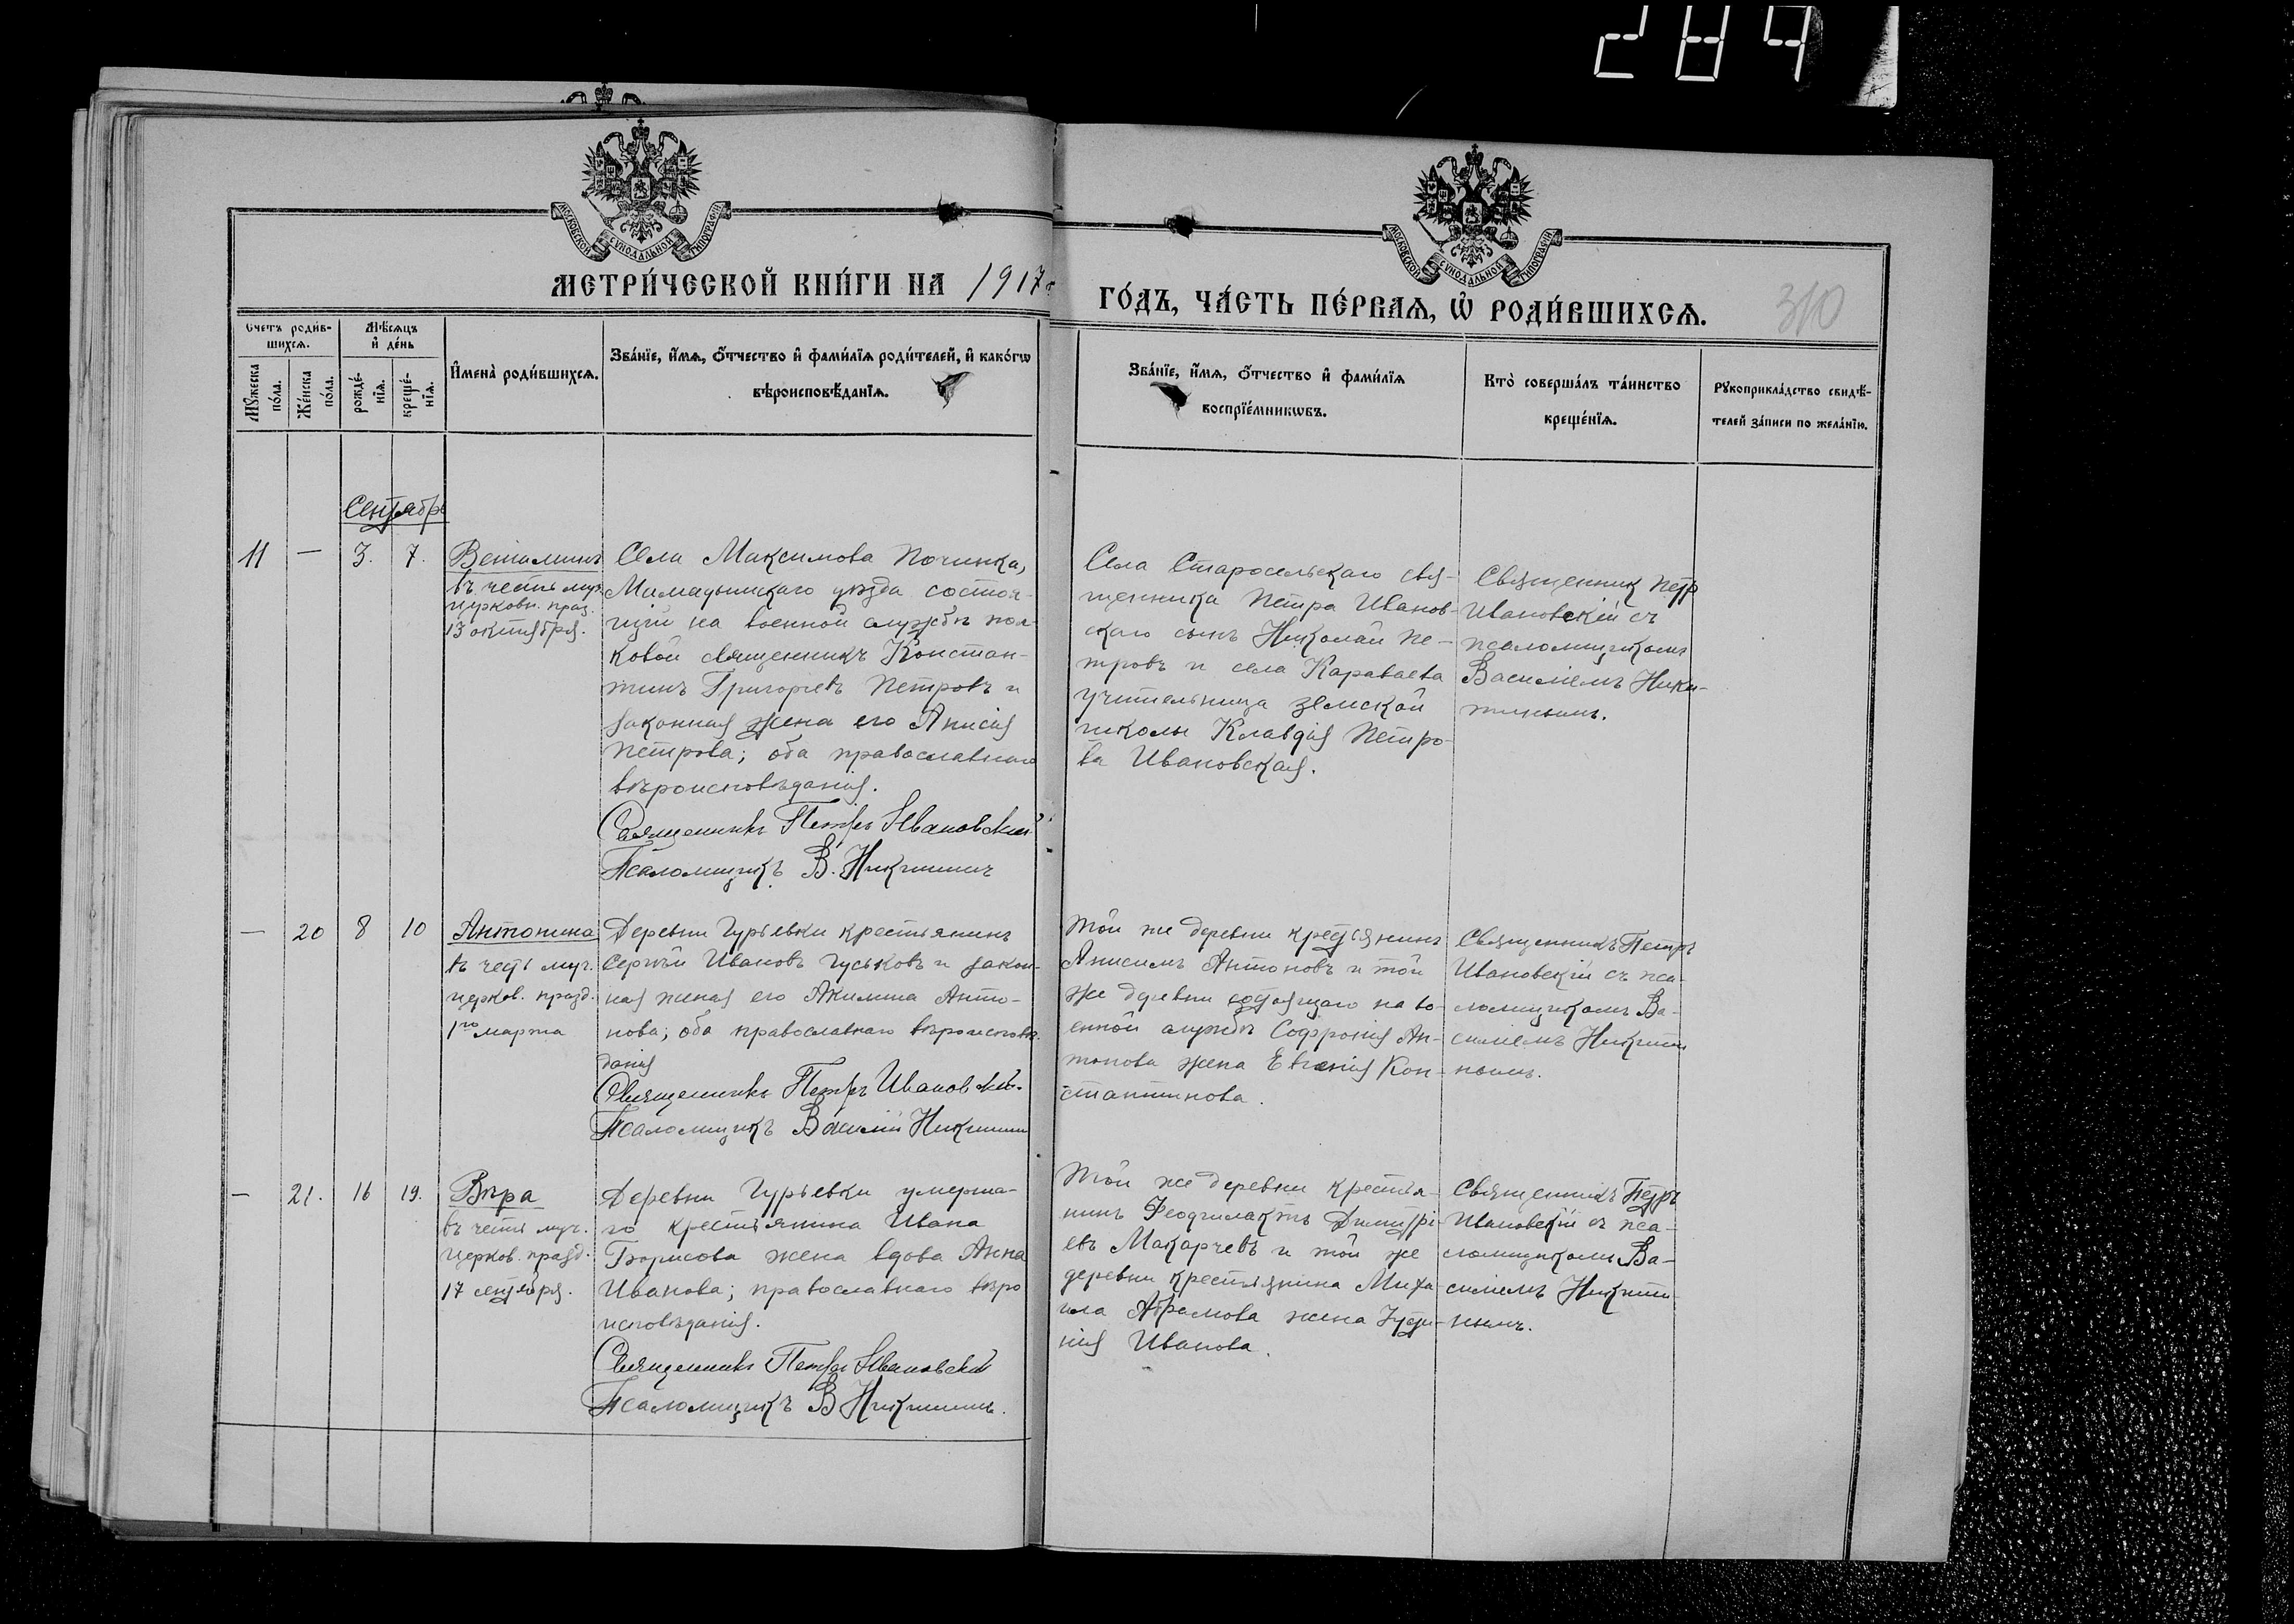 284
МОСКОВСКОЙ СѴНОДАЛЬНОЙ ТИПОГРАФІИ
МОСКОВСКОЙ СѴНОДАЛЬНОЙ ТИПОГРАФІИ
МЕТРИ́ЧЕСКОЙ КНИ́ГИ НА 1917 г.
ГО́ДЪ, ЧА́СТЬ ПЕ́РВАѦ, Ѡ҆ РОДИ́ВШИХСѦ.
310
Счетъ роди́в-
шихсѧ.
Мѣ́сѧцъ
и҆ де́нь
Мꙋ́жеска
по́ла.
Же́нска
по́ла.
рожде́-
нїѧ.
креще́-
нїѧ.
И҆мена̀ роди́вшихсѧ.
Зва́нїе, и҆́мѧ, ѻ҆́тчество и҆ фами́лїѧ роди́телей, и҆ како́гѡ
вѣроисповѣ́данїѧ.
Зва́нїе, и҆́мѧ, ѻ҆́тчество и҆ фами́лїѧ
воспрїе́мникѡвъ.
Кто̀ соверша́лъ та́инство
креще́нїѧ.
Рꙋкоприкла́дство свидѣ́-
телей за́писи по жела́нїю.
Сентябрь
11
—
3.
7.
Веніаминъ
въ честь муч.
церковн. праз.
13 октября.
Села Максимова Починка,
Мамадышскаго уѣзда состоя-
щій на военной службѣ пол-
ковой священникъ Констан-
тинъ Григорьевъ Петровъ и
законная жена его Анисія
Петрова; оба православнаго
вѣроисповѣданія.
Священникъ Петръ Ивановскій
Псаломщикъ В. Никитинъ
Села Старосельскаго свя-
щенника Петра Иванов-
скаго сынъ Николай Пе-
тровъ и села Караваева
учительница земской
школы Клавдія Петро-
ва Ивановская.
Священник Петр
Ивановскій съ
псаломщикомъ
Василіемъ Ники-
тинымъ.
—
20
8
10
Антонина
въ честь муч.
церков. празд.
1го марта
Деревни Гурьевки крестьянинъ
Сергѣй Ивановъ Гуськовъ и закон-
ная жена его Акилина Анто-
нова; оба православнаго вѣроисповѣ-
данія
Священникъ Петръ Ивановскій.
Псаломщикъ Василій Никитинъ
Той же деревни крестьянинъ
Анисимъ Антоновъ и той
же деревни состоящаго на во-
енной службѣ Софронія Ан-
тонова жена Евгенія Кон-
стантинова.
Священникъ Петръ
Ивановскій съ пса-
ломщикомъ Ва-
силіемъ Никити-
нымъ.
—
21.
16
19.
Вѣра
въ честь муч.
церков. празд.
17 сентября.
Деревни Гурьевки умерша-
го крестьянина Ивана
Борисова жена вдова Анна
Иванова; православнаго вѣро
исповѣданія.
Священникъ Петръ Ивановскій
Псаломщикъ В Никитинъ.
Той же деревни крестья-
нинъ Феофилактъ Димитрі-
евъ Макарчевъ и той же
деревни крестьянина Миха-
ила Абрамова жена Іусти-
нія Иванова.
Священникъ Петръ
Ивановскій съ пса-
ломщикомъ Ва-
силіемъ Никити-
нымъ.